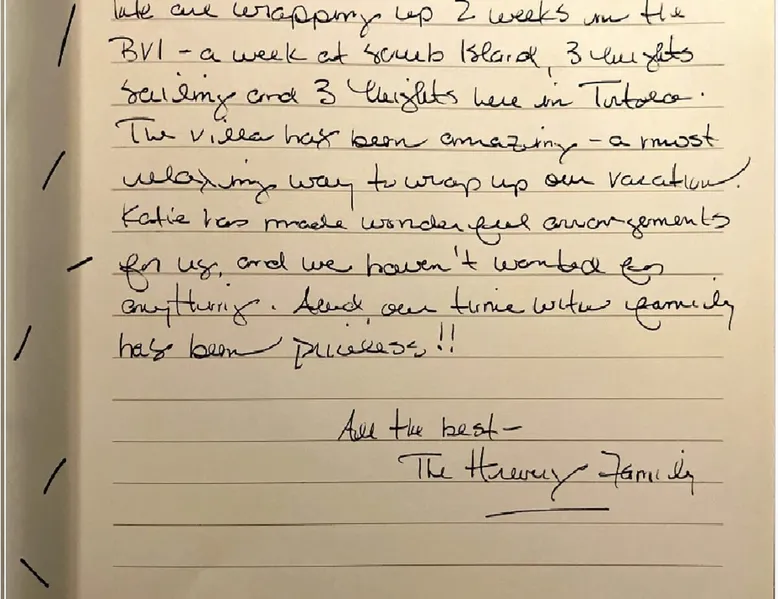 We are wrapping up 2 weeks in the
BVI - a week at Scrub Island, 3 nights
sailing and 3 nights here in Tortola.
The villa has been amazing - a most
relaxing way to wrap up our vacation.
Katie has made wonderful arrangements
for us, and we haven't wanted for
anything. And, our time with family
has been priceless!!
All the best -
The Family